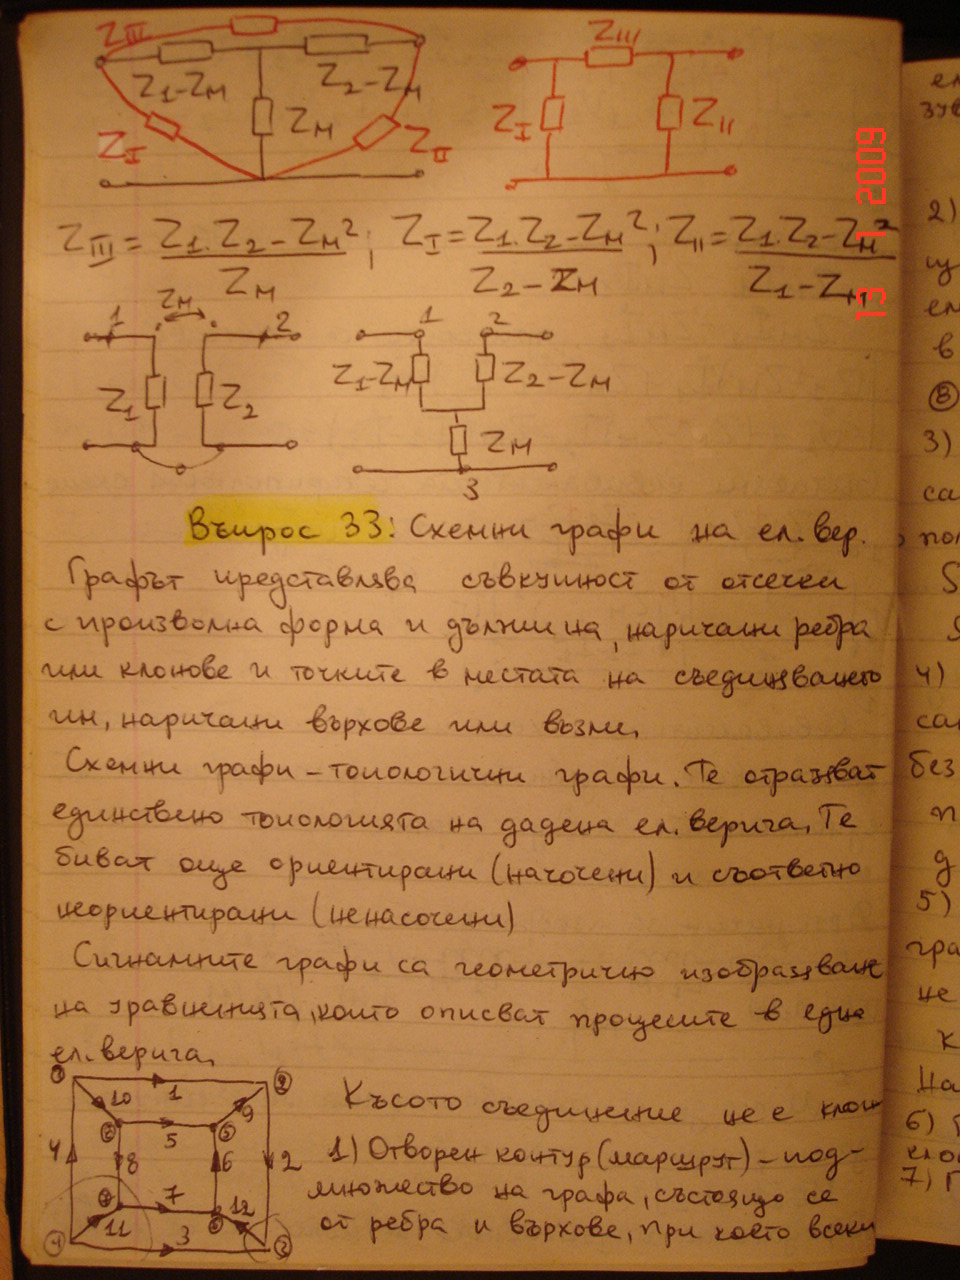 Z_III
Z₁-Z_M Z₂-Z_M
Z_M
Z_I Z_II
Z_III
Z_I Z_II
Z_III = Z₁.Z₂-Z_M² / Z_M ; Z_I = Z₁.Z₂-Z_M² / Z₂-Z_M ; Z_II = Z₁.Z₂-Z_M² / Z₁-Z_M
13 2009
1 Z_M 2
Z₁ Z₂
1 2
Z₁-Z_M Z₂-Z_M
Z_M
3
Въпрос 33: Схемни графи на ел. вер.
Графът представлява съвкупност от отсечки
с произволна форма и дължина, наричани ребра
или клонове и точките в местата на съединяването
им, наричани върхове или възли.
Схемни графи - топологични графи. Те отразяват
единствено топологията на дадена ел. верига. Те
биват още ориентирани (насочени) и съответно
неориентирани (ненасочени)
Сигналните графи са геометрично изобразяване
на уравненията, които описват процесите в една
ел. верига.
1 2
10 9
5
4 8 6 2
7
11 12
4 3 3
Късото съединение не е клон
1) Отворен контур (маршрут) - под-
множество на графа, състоящо се
от ребра и върхове, при което всеки
2)
в
3)
са
4)
без
5)
гра
не
На
6)
7)